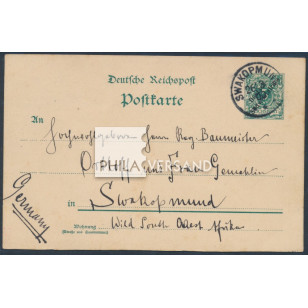 SWAKOPMUND
Deutsche Reichspost
Postkarte
An Hochwohlgeboren Herrn Reg. Baumeister
PHILAVERSAND
und Frau Gemahlin
in Swakopmund
Wohnung
(Straße und Hausnummer)
Wild South West Afrika
Germany